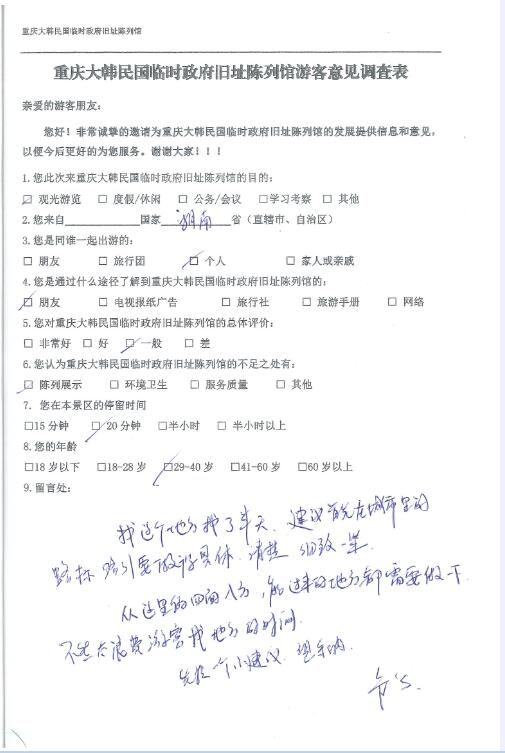 重庆大韩民国临时政府旧址陈列馆
重庆大韩民国临时政府旧址陈列馆游客意见调查表
亲爱的游客朋友：
您好！非常诚挚的邀请为重庆大韩民国临时政府旧址陈列馆的发展提供信息和意见，
以便今后更好的为您服务。谢谢大家！！！
1.您此次来重庆大韩民国临时政府旧址陈列馆的目的：
☑ 观光游览 □ 度假/休闲 □ 公务/会议 □学习考察 □ 其他
2.您来自__________国家 湖南 省（直辖市、自治区）
3.您是同谁一起出游的：
□ 朋友 □ 旅行团 ☑ 个人 □ 家人或亲戚
4.您是通过什么途径了解到重庆大韩民国临时政府旧址陈列馆的：
☑ 朋友 □ 电视报纸广告 □ 旅行社 □ 旅游手册 □ 网络
5.您对重庆大韩民国临时政府旧址陈列馆的总体评价：
□ 非常好 □ 好 ☑一般 □ 差
6.您认为重庆大韩民国临时政府旧址陈列馆的不足之处有：
☑ 陈列展示 □ 环境卫生 □ 服务质量 □ 其他
7. 您在本景区的停留时间
□15 分钟 ☑ 20 分钟 □半小时 □ 半小时以上
8.您的年龄
□18 岁以下 □18-28 岁 ☑29-40 岁 □41-60 岁 □60 岁以上
9.留言处：
找这个地方找了半天，建议首先在城市里的
路标 路引要做得具体、清楚 细致一些.
从这里的四面八方，能进来的地方都需要做下
不然太浪费游客找地方的时间.
先提个小建议，望采纳.